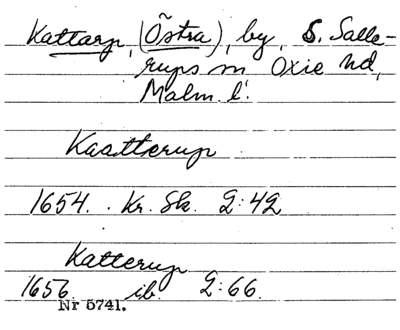 Kattarp, (Östra), by, S. Salle-
rups sn Oxie hd,
Malm. l.
Kaatterup
1654. Kr. Sk. 2:42
Katterup
1656 ib. 2:66.
Nr 5741.